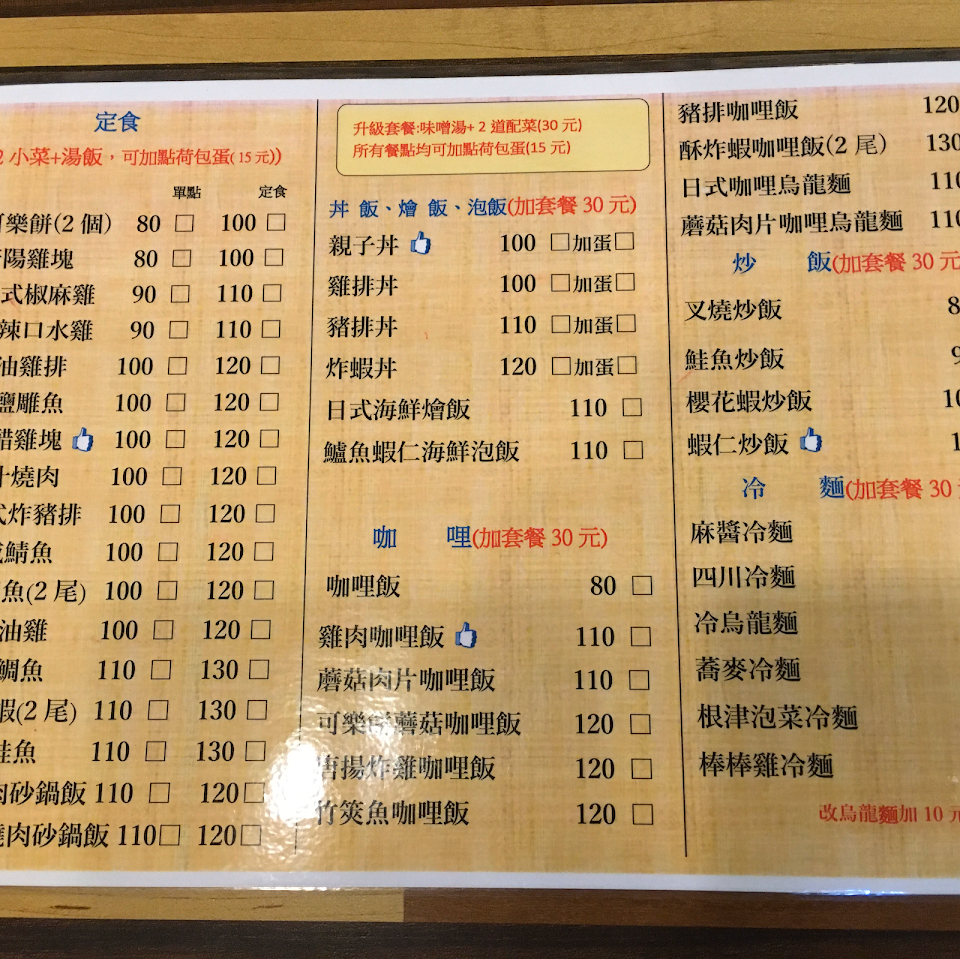 定食
2 小菜+湯飯，可加點荷包蛋( 15 元))
單點 定食
可樂餅(2 個) 80 □ 100 □
陽雞塊 80 □ 100 □
式椒麻雞 90 □ 110 □
辣口水雞 90 □ 110 □
油雞排 100 □ 120 □
鹽雕魚 100 □ 120 □
醋雞塊 100 □ 120 □
汁燒肉 100 □ 120 □
式炸豬排 100 □ 120 □
鯖魚 100 □ 120 □
魚(2 尾) 100 □ 120 □
油雞 100 □ 120 □
鯛魚 110 □ 130 □
蝦(2 尾) 110 □ 130 □
鮭魚 110 □ 130 □
肉砂鍋飯 110 □ 120 □
燒肉砂鍋飯 110 □ 120 □
升級套餐:味噌湯+ 2 道配菜(30 元)
所有餐點均可加點荷包蛋(15 元)
丼 飯、燴 飯、泡飯(加套餐 30 元)
親子丼 100 □加蛋□
雞排丼 100 □加蛋□
豬排丼 110 □加蛋□
炸蝦丼 120 □加蛋□
日式海鮮燴飯 110 □
鱸魚蝦仁海鮮泡飯 110 □
咖 哩(加套餐 30 元)
咖哩飯 80 □
雞肉咖哩飯 110 □
蘑菇肉片咖哩飯 110 □
可樂餅蘑菇咖哩飯 120 □
唐揚炸雞咖哩飯 120 □
竹筴魚咖哩飯 120 □
豬排咖哩飯 120
酥炸蝦咖哩飯(2 尾) 130
日式咖哩烏龍麵 110
蘑菇肉片咖哩烏龍麵 110
炒 飯(加套餐 30 元
叉燒炒飯 8
鮭魚炒飯 9
櫻花蝦炒飯 10
蝦仁炒飯 1
冷 麵(加套餐 30
麻醬冷麵
四川冷麵
冷烏龍麵
蕎麥冷麵
根津泡菜冷麵
棒棒雞冷麵
改烏龍麵加 10 元